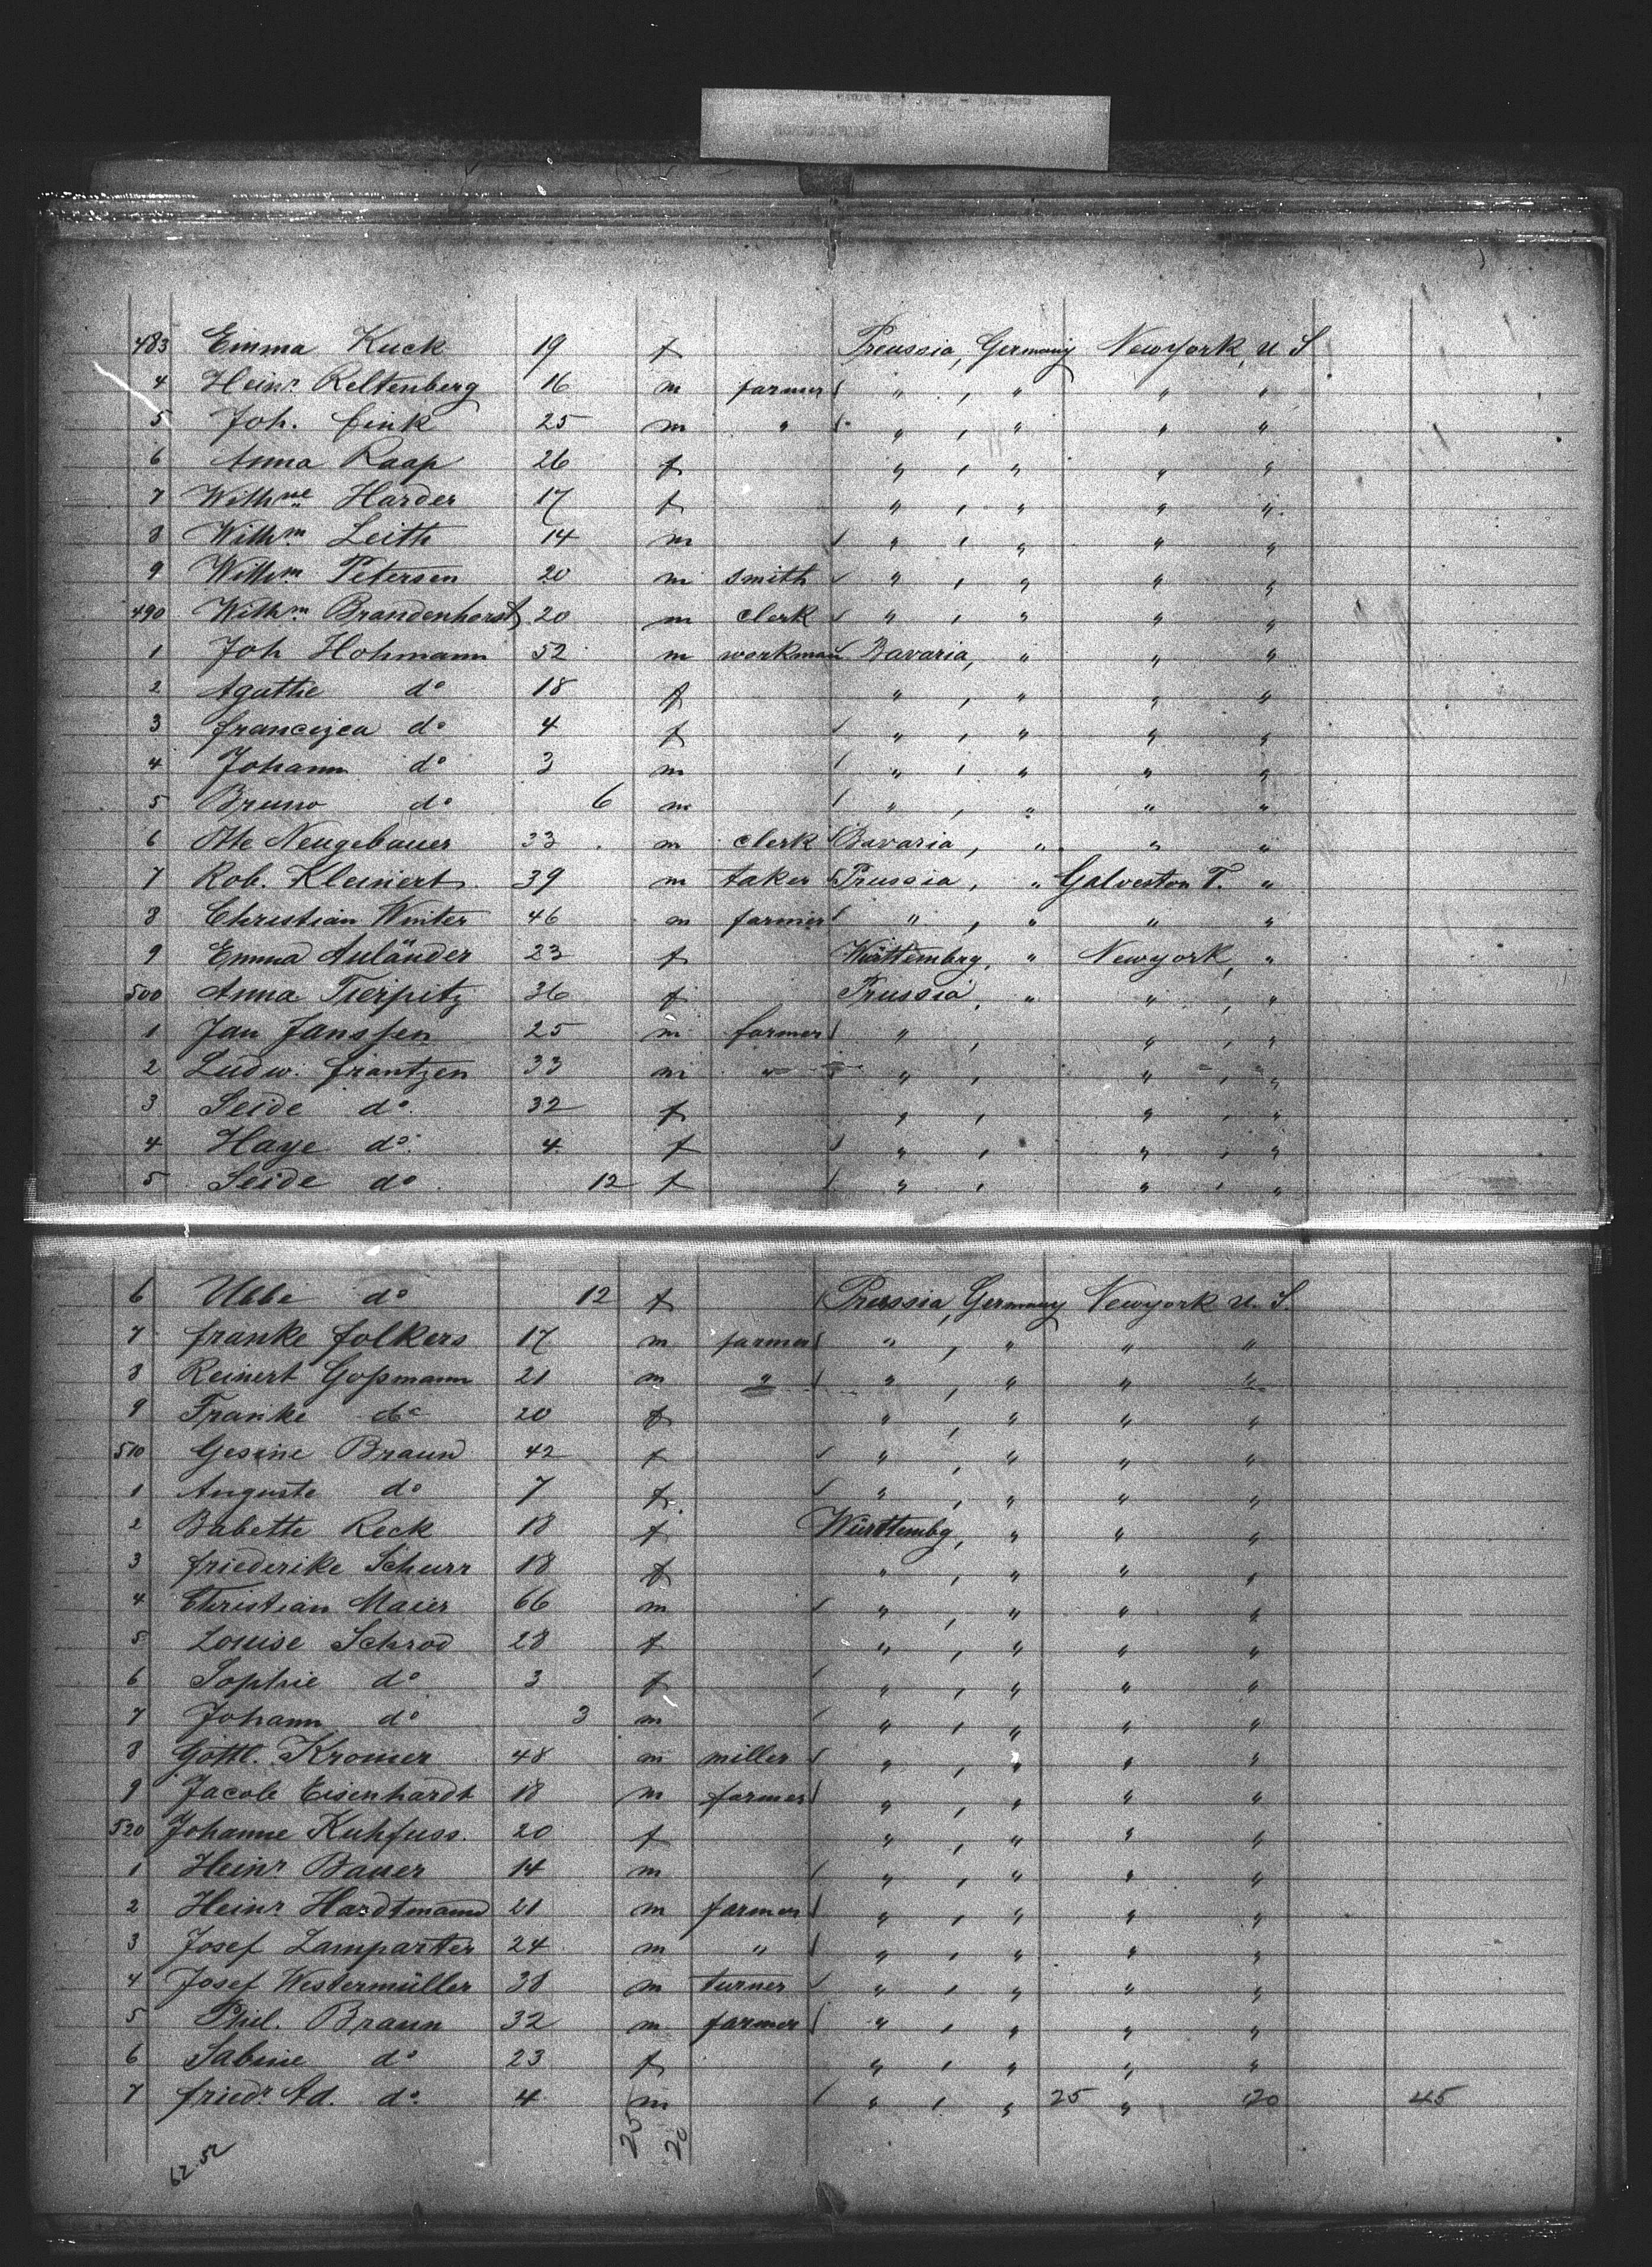 483 Emma Kuck 19 f Preussia, Germany Newyork, U S
4 Heinr. Reltenberg 16 m farmer " , " " "
5 Joh. Fink 25 m " " , " " "
6 Anna Raap 26 f " , " " "
7 Wilhne Harder 17 f " , " " "
8 Wilhm Leith 14 m " , " " "
9 Wilhm Petersen 20 m smith " , " " "
490 Wilhm Brandenhorst 20 m clerk " , " " "
1 Joh Hohmann 52 m workman Bavaria, " " "
2 Agathe do 18 f " , " " "
3 Francizca do 4 f " , " " "
4 Johann do 3 m " , " " "
5 Bruno do 6 m " , " " "
6 Otto Neugebauer 33 m clerk Bavaria, " " "
7 Rob. Kleinert 39 m taker Prussia, " Galveston T. "
8 Christian Winter 46 m farmer " , " " "
9 Emma Auländer 23 f Württemberg, " Newyork, "
500 Anna Tierpitz 36 f Prussia, " " , "
1 Jan Janssen 25 m farmer " , " , "
2 Ludw. Frantzen 33 m " " , " , "
3 Seide do 32 f " , " , "
4 Haye do. 4 f " , " , "
5 Seide do 12 f " , " , "
6 Ubbe do 12 f Preussia, Germany Newyork U. S.
7 Franke Folkers 17 m farmer " , " " "
8 Reinert Gossmann 21 m " " , " " "
9 Franke do 20 f " , " " "
510 Gesine Braun 42 f " , " " "
1 Auguste do 7 f " , " " "
2 Babette Reck 18 f Württembg, " " "
3 Friederike Schurr 18 f " , " " "
4 Christian Maier 66 m " , " " "
5 Louise Schrod 28 f " , " " "
6 Sophie do 3 f " , " " "
7 Johann do 3 m " , " " "
8 Gottl. Kromer 48 m miller " , " " "
9 Jacob Eisenhardt 18 m farmer " , " " "
520 Johanne Kuhfuss. 20 f " , " " "
1 Heinr Bauer 14 m " , " " "
2 Heinr Hardtmann 21 m farmer " , " " "
3 Josef Lamparter 24 m " " , " " "
4 Josef Westermüller 38 m turner " , " " "
5 Phil. Braun 32 m farmer " , " " "
6 Sabine do 23 f " , " " "
7 Friedr Ad. do. 4 m " , " 25 " 20 45
62.52 25 20